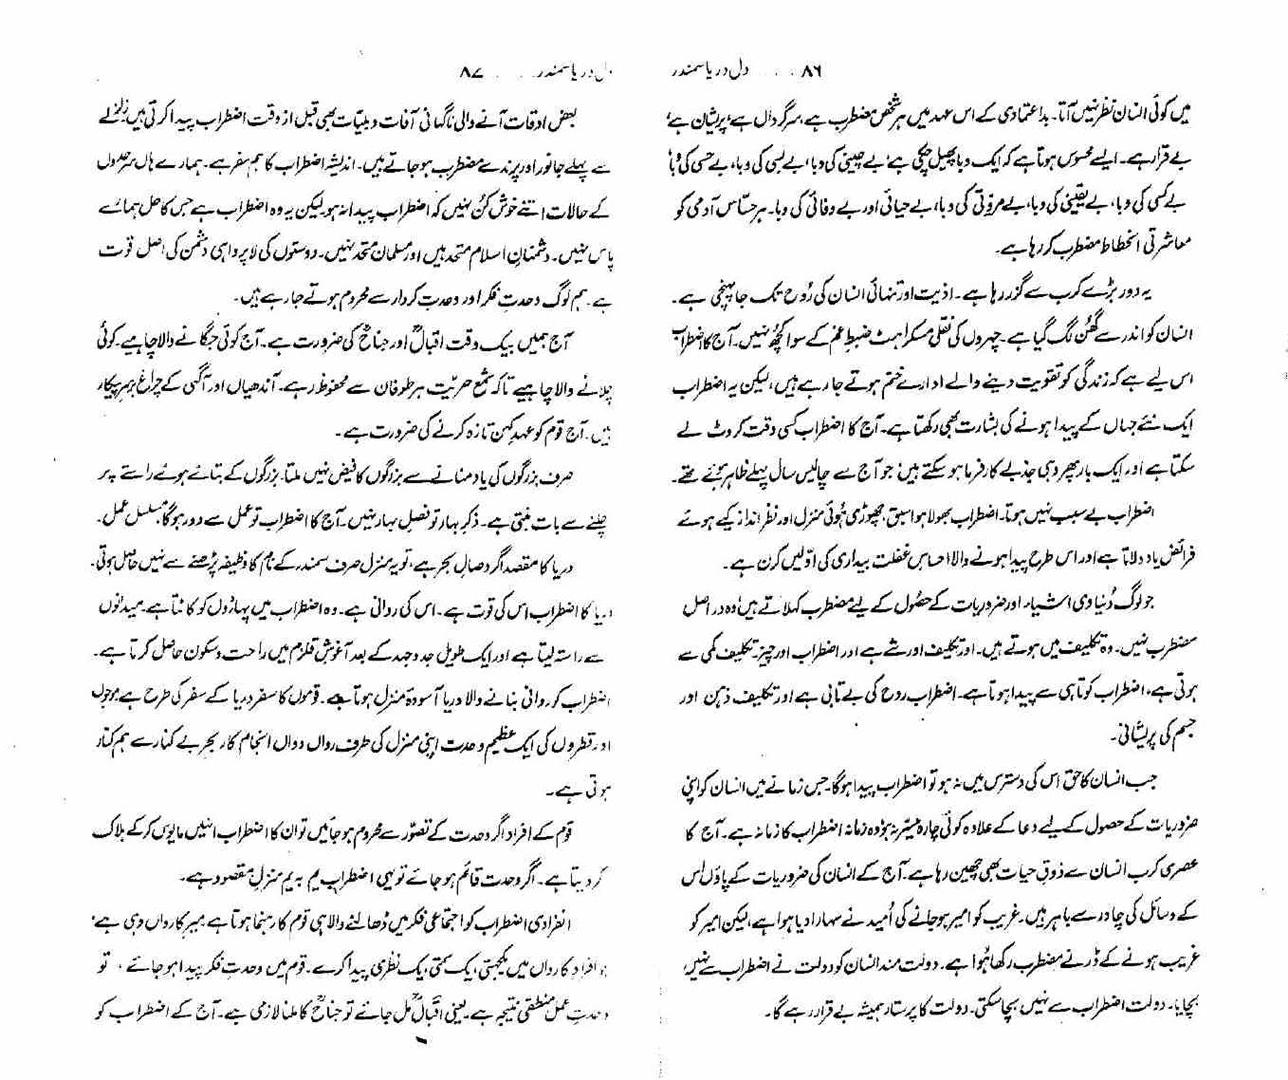 ۸۶ . . . . دل دریا سمندر
میں کوئی انسان نظر نہیں آتا۔ بداعتمادی کے اس عہد میں ہر شخص مضطرب ہے، سرگرداں ہے، پریشان ہے،
بے قرار ہے۔ ایسے محسوس ہوتا ہے کہ ایک وبا پھیل چکی ہے، بے چینی کی وبا، بے بسی کی وبا، بے حسی کی وبا،
بے کسی کی وبا، بے یقینی کی وبا، بے مروتی کی وبا، بے حیائی اور بے وفائی کی وبا۔ ہر حسّاس آدمی کو
معاشرتی انحطاط مضطرب کر رہا ہے۔
یہ دور بڑے کرب سے گزر رہا ہے۔ اذیت اور تنہائی انسان کی رُوح تک جا پہنچی ہے۔
انسان کو اندر سے گھُن لگ گیا ہے۔ چہروں کی نقلی مسکراہٹ ضبطِ غم کے سوا کچھ نہیں۔ آج کا اضطراب
اس لیے ہے کہ زندگی کو تقویت دینے والے ادارے ختم ہوتے جا رہے ہیں، لیکن یہ اضطراب
ایک نئے جہاں کے پیدا ہونے کی بشارت بھی رکھتا ہے۔ آج کا اضطراب کسی وقت کروٹ لے
سکتا ہے اور ایک بار پھر وہی جذبے کارفرما ہو سکتے ہیں، جو آج سے چالیس سال پہلے ظاہر ہوئے تھے۔
اضطراب بے سبب نہیں ہوتا۔ اضطراب بھولا ہوا سبق، چھوڑی ہُوئی منزل اور نظر انداز کیے ہوئے
فرائض یاد دلاتا ہے اور اس طرح پیدا ہونے والا احساسِ غفلت بیداری کی اوّلیں کرن ہے۔
جو لوگ دُنیاوی اشیاء اور ضروریات کے حصُول کے لیے مضطرب کہلاتے ہیں، وہ در اصل
مضطرب نہیں۔ وہ تکلیف میں ہوتے ہیں۔ اور تکلیف اور شے ہے اور اضطراب اور چیز۔ تکلیف کمی سے
ہوتی ہے، اضطراب کوتاہی سے پیدا ہوتا ہے۔ اضطراب روح کی بے تابی ہے اور تکلیف ذہن اور
جسم کی پریشانی۔
جب انسان کا حق اس کی دسترس میں نہ ہو تو اضطراب پیدا ہوگا۔ جس زمانے میں انسان کو اپنی
ضروریات کے حصول کے لیے دعا کے علاوہ کوئی چارہ میسّر نہ ہو، وہ زمانہ اضطراب کا زمانہ ہے۔ آج کا
عصری کرب انسان سے ذوقِ حیات بھی چھین رہا ہے۔ آج کے انسان کی ضروریات کے پاؤں اس
کے وسائل کی چادر سے باہر ہیں۔ غریب کو امیر ہو جانے کی اُمید نے سہارا دیا ہوا ہے، لیکن امیر کو
غریب ہونے کے ڈر نے مضطرب رکھا ہُوا ہے۔ دولت مند انسان کو دولت نے اضطراب سے نہیں
بچایا۔ دولت اضطراب سے نہیں بچا سکتی۔ دولت کا پرستار ہمیشہ بے قرار رہے گا۔
دل دریا سمندر . . . . ۸۷
بعض اوقات آنے والی ناگہانی آفات و بلیّات بھی قبل از وقت اضطراب پیدا کرتی ہیں، زلزلے
سے پہلے جانور اور پرندے مضطرب ہو جاتے ہیں۔ اندیشہ اضطراب کا ہم سفر ہے۔ ہمارے ہاں سرحدوں
کے حالات اتنے خوش کُن نہیں کہ اضطراب پیدا نہ ہو، لیکن یہ وہ اضطراب ہے جس کا حل ہمارے
پاس نہیں۔ دشمنانِ اسلام متحد ہیں اور مسلمان متحد نہیں۔ دوستوں کی لاپرواہی دشمن کی اصل قوّت
ہے۔ ہم لوگ وحدتِ فکر اور وحدتِ کردار سے محروم ہوتے جا رہے ہیں۔
آج ہمیں بیک وقت اقبالؒ اور جناحؒ کی ضرورت ہے۔ آج کوئی جگانے والا چاہیے۔ کوئی
چلانے والا چاہیے تاکہ شمعِ حریّت ہر طوفان سے محفوظ رہے۔ آندھیاں اور آگہی کے چراغ برسرپیکار
ہیں۔ آج قوم کو عہدِ کہن تازہ کرنے کی ضرورت ہے۔
صرف بزرگوں کی یاد منانے سے بزرگوں کا فیض نہیں ملتا۔ بزرگوں کے بتائے ہوئے راستے پر
چلنے سے بات بنتی ہے۔ ذکرِ بہار تو فصلِ بہار نہیں۔ آج کا اضطراب تو عمل سے دور ہوگا، مسلسل عمل۔
دریا کا مقصد اگر وصالِ بحر ہے، تو یہ منزل صرف سمندر کے نام کا وظیفہ پڑھنے سے نہیں حاصل ہوتی۔
دریا کا اضطراب اس کی قوت ہے۔ اس کی روانی ہے۔ وہ اضطراب میں پہاڑوں کو کاٹتا ہے، میدانوں
سے راستہ لیتا ہے اور ایک طویل جدوجہد کے بعد آغوشِ قلزم میں راحت و سکون حاصل کرتا ہے۔
اضطراب کو روانی بنانے والا دریا آسودۂ منزل ہوتا ہے۔ قوموں کا سفر دریا کے سفر کی طرح ہے، موجوں
اور قطروں کی ایک عظیم وحدت اپنی منزل کی طرف رواں دواں انجام کار بحرِ بے کنار سے ہم کنار
ہوتی ہے۔
قوم کے افراد اگر وحدت کے تصوّر سے محروم ہو جائیں تو ان کا اضطراب انہیں مایوس کر کے ہلاک
کر دیتا ہے۔ اگر وحدت قائم ہو جائے تو یہی اضطراب یم بہ یم منزلِ مقصود ہے۔
انفرادی اضطراب کو اجتماعی فکر میں ڈھالنے والا ہی قوم کا رہنما ہوتا ہے، میرِ کارواں وہی ہے،
جو افرادِ کارواں میں یکجہتی، یک سمتی، یک نظری پیدا کرے۔ قوم میں وحدتِ فکر پیدا ہو جائے، تو
وحدتِ عمل منطقی نتیجہ ہے۔ یعنی اقبالؒ مل جائے تو جناحؒ کا ملنا لازمی ہے۔ آج کے اضطراب کو